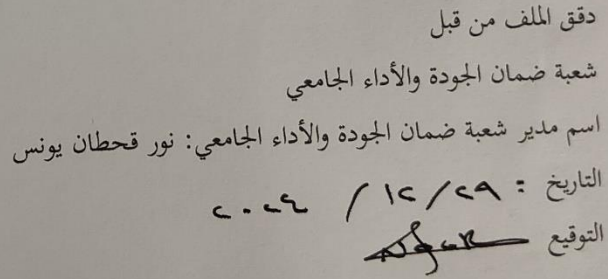 دقق الملف من قبل
شعبة ضمان الجودة والأداء الجامعي
اسم مدير شعبة ضمان الجودة والأداء الجامعي: نور قحطان يونس
التاريخ : ٢٩ / ١٢ / ٢٠٢٤
التوقيع